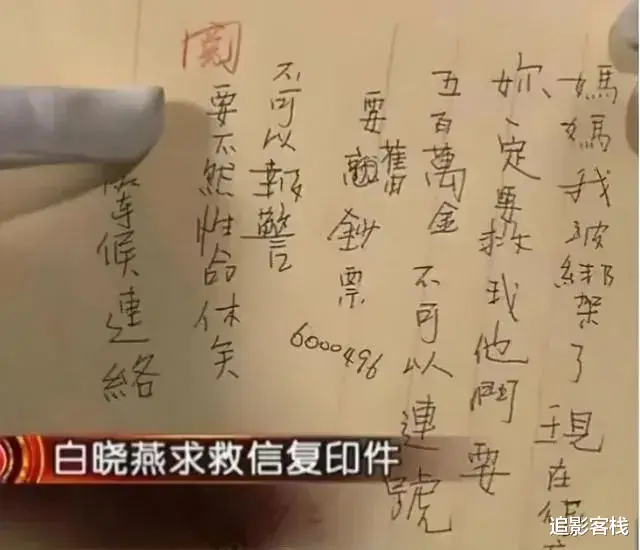 媽媽我被綁架了現在
妳一定要救我他們要
五百萬金 不可以連號
要舊鈔票
6000496
不可以報警
要不然性命休矣
候連絡
白晓燕求救信复印件
追影客栈